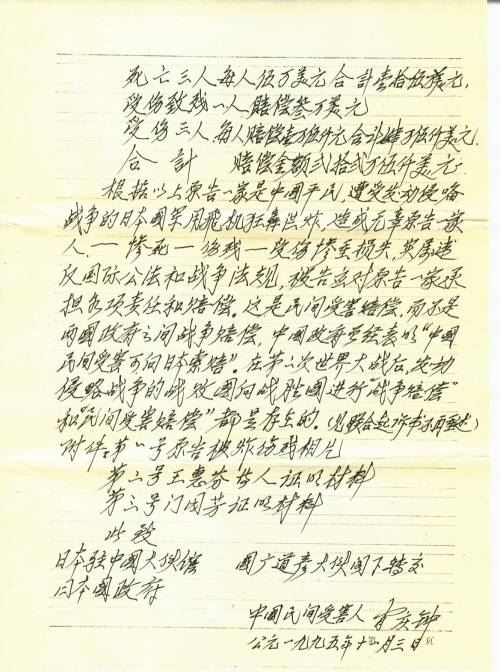 死亡三人每人伍万美元合計壹拾伍万美元,
受伤致残一人賠偿叁万美元
受伤三人每人賠偿壹万伍仟元合計肆万伍仟美元
合計 賠偿金額弍拾弍万伍仟美元.
根据以上原告一家是中國平民,遭受发动侵略
战争的日本國军用飛机狂轟烂炸,造成无辜原告一家
人.一惨死一伤残一受伤惨重损失,实属违
反国际公法和战争法规,被告应对原告一家承
担各项责任和賠偿。这是民间受害賠偿,而不是
两國政府之间战争賠偿,中國政府曾经表以“中國
民间受害可向日本索賠”。在第二次世界大战后,发动
侵略战争的战敗國向战胜國進行“战争賠偿”
和“民间受害賠偿”都是存在的。(从联合起诉书不再重述)
附件:第一号原告被炸伤残相片
第二号王惠芬 人证明材料
第三号门国芳证明材料
此致
日本駐中國大使館 國广道彦大使阁下轉交
日本國政府
中國民间受害人 庆钟
公元一九九五年十 月三日